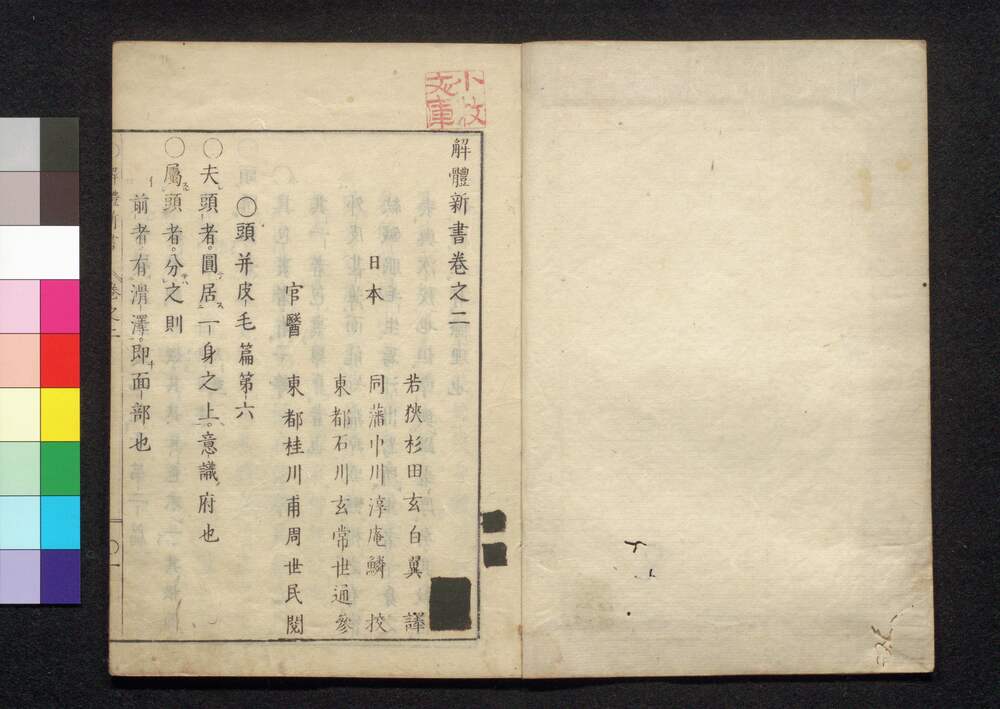 解體新書卷之二
若狹杉田玄白翼 譯
日本 同藩中川淳庵鱗 校
東都石川玄常世通參
官醫 東都桂川甫周世民閱
○頭并皮毛篇第六
○夫頭者。圓居一身之上。意識府也
○屬頭者。分之則
前者。有滑澤。即面部也